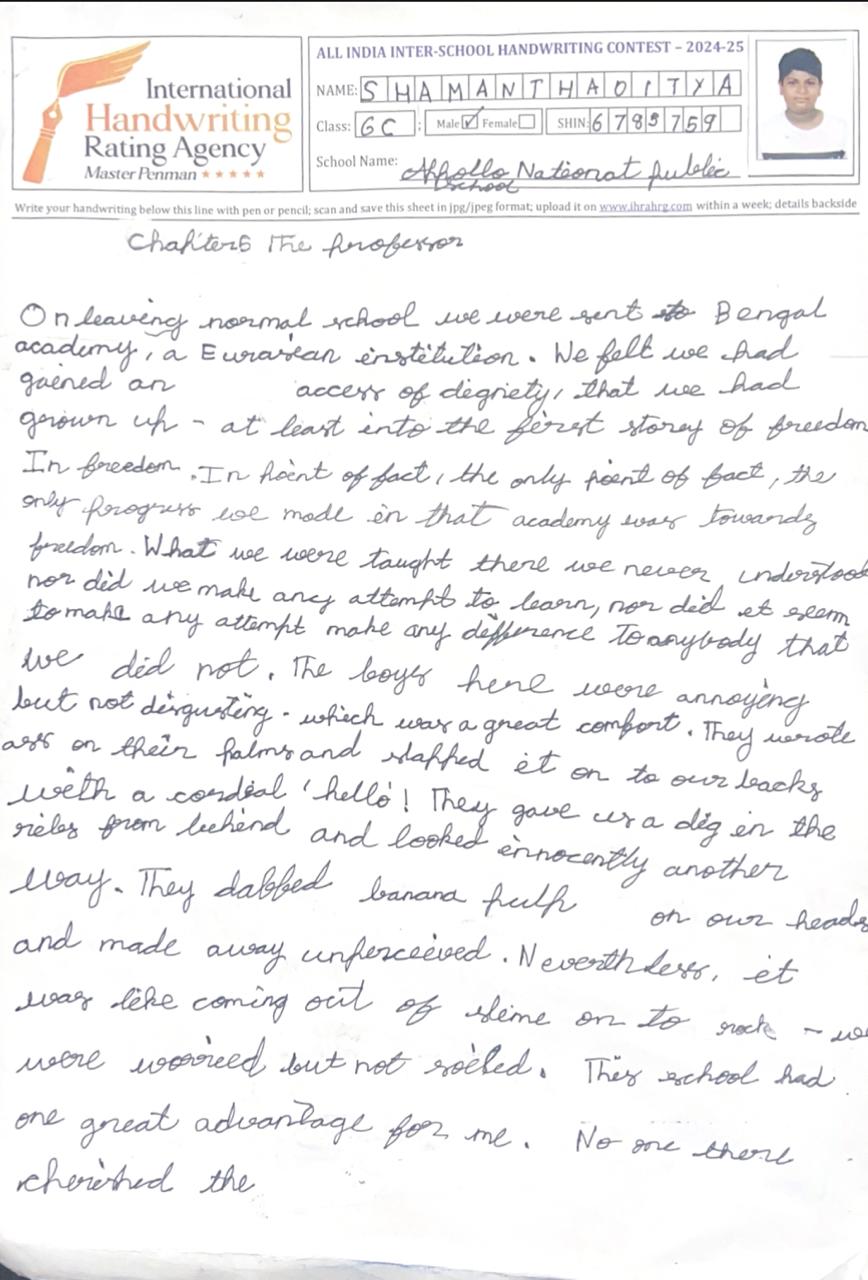 International
Handwriting
Rating Agency
Master Penman
ALL INDIA INTER-SCHOOL HANDWRITING CONTEST – 2024-25
NAME: SHAMANTHADITYA
Class: 6C Male Female SHIN: 6785759
School Name: Appollo National public
school
Write your handwriting below this line with pen or pencil; scan and save this sheet in jpg/jpeg format; upload it on www.ihrahrg.com within a week; details backside
Chapter6 The professor
On leaving normal school we were sent to Bengal
academy, a Eurasian institution. We felt we had
gained an access of digniety, that we had
grown up - at least into the first storey of freedom
In freedom. In point of fact, the only point of fact, the
only progress we made in that academy was towards
freedom. What we were taught there we never understood
nor did we make any attempt to learn, nor did it seem
to make any attempt make any difference To anybody that
we did not. The boys here were annoying
but not disgusting - which was a great comfort. They wrote
ass on their palms and slapped it on to our backs
with a cordial 'hello'! They gave us a dig in the
ribs from behind and looked innocently another
way. They dabbed banana pulp on our heads
and made away unperceived. Neverthless, it
was like coming out of slime on to rock - we
were worried but not soiled. This school had
one great advantage for me. No one there
cherished the